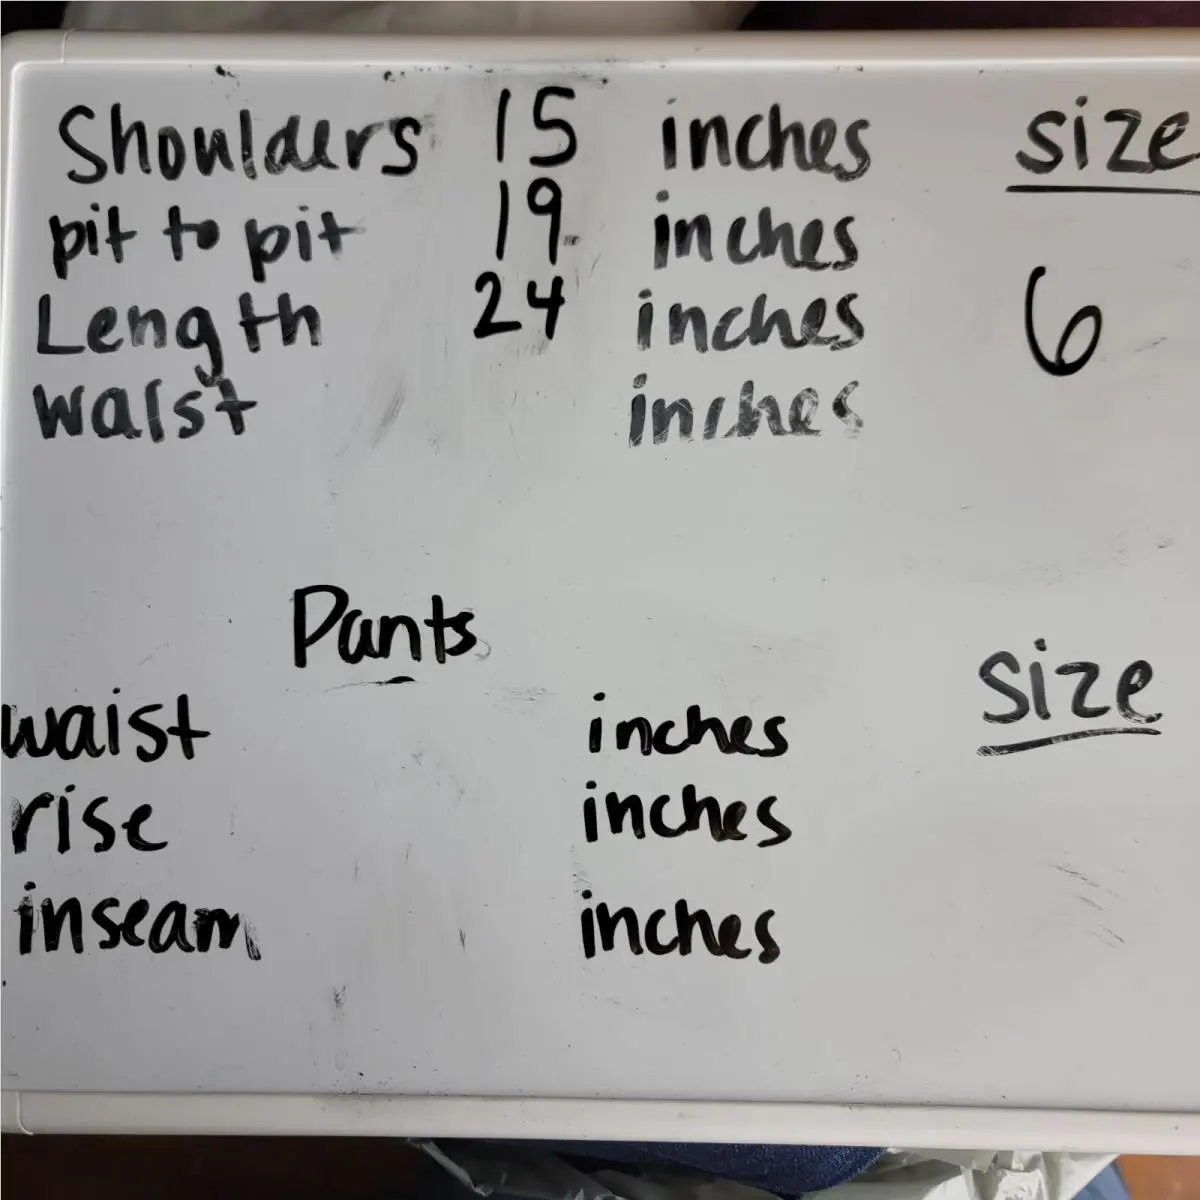 Shoulders 15 inches size
pit to pit 19 inches
Length 24 inches 6
waist inches
Pants
size
waist inches
rise inches
inseam inches